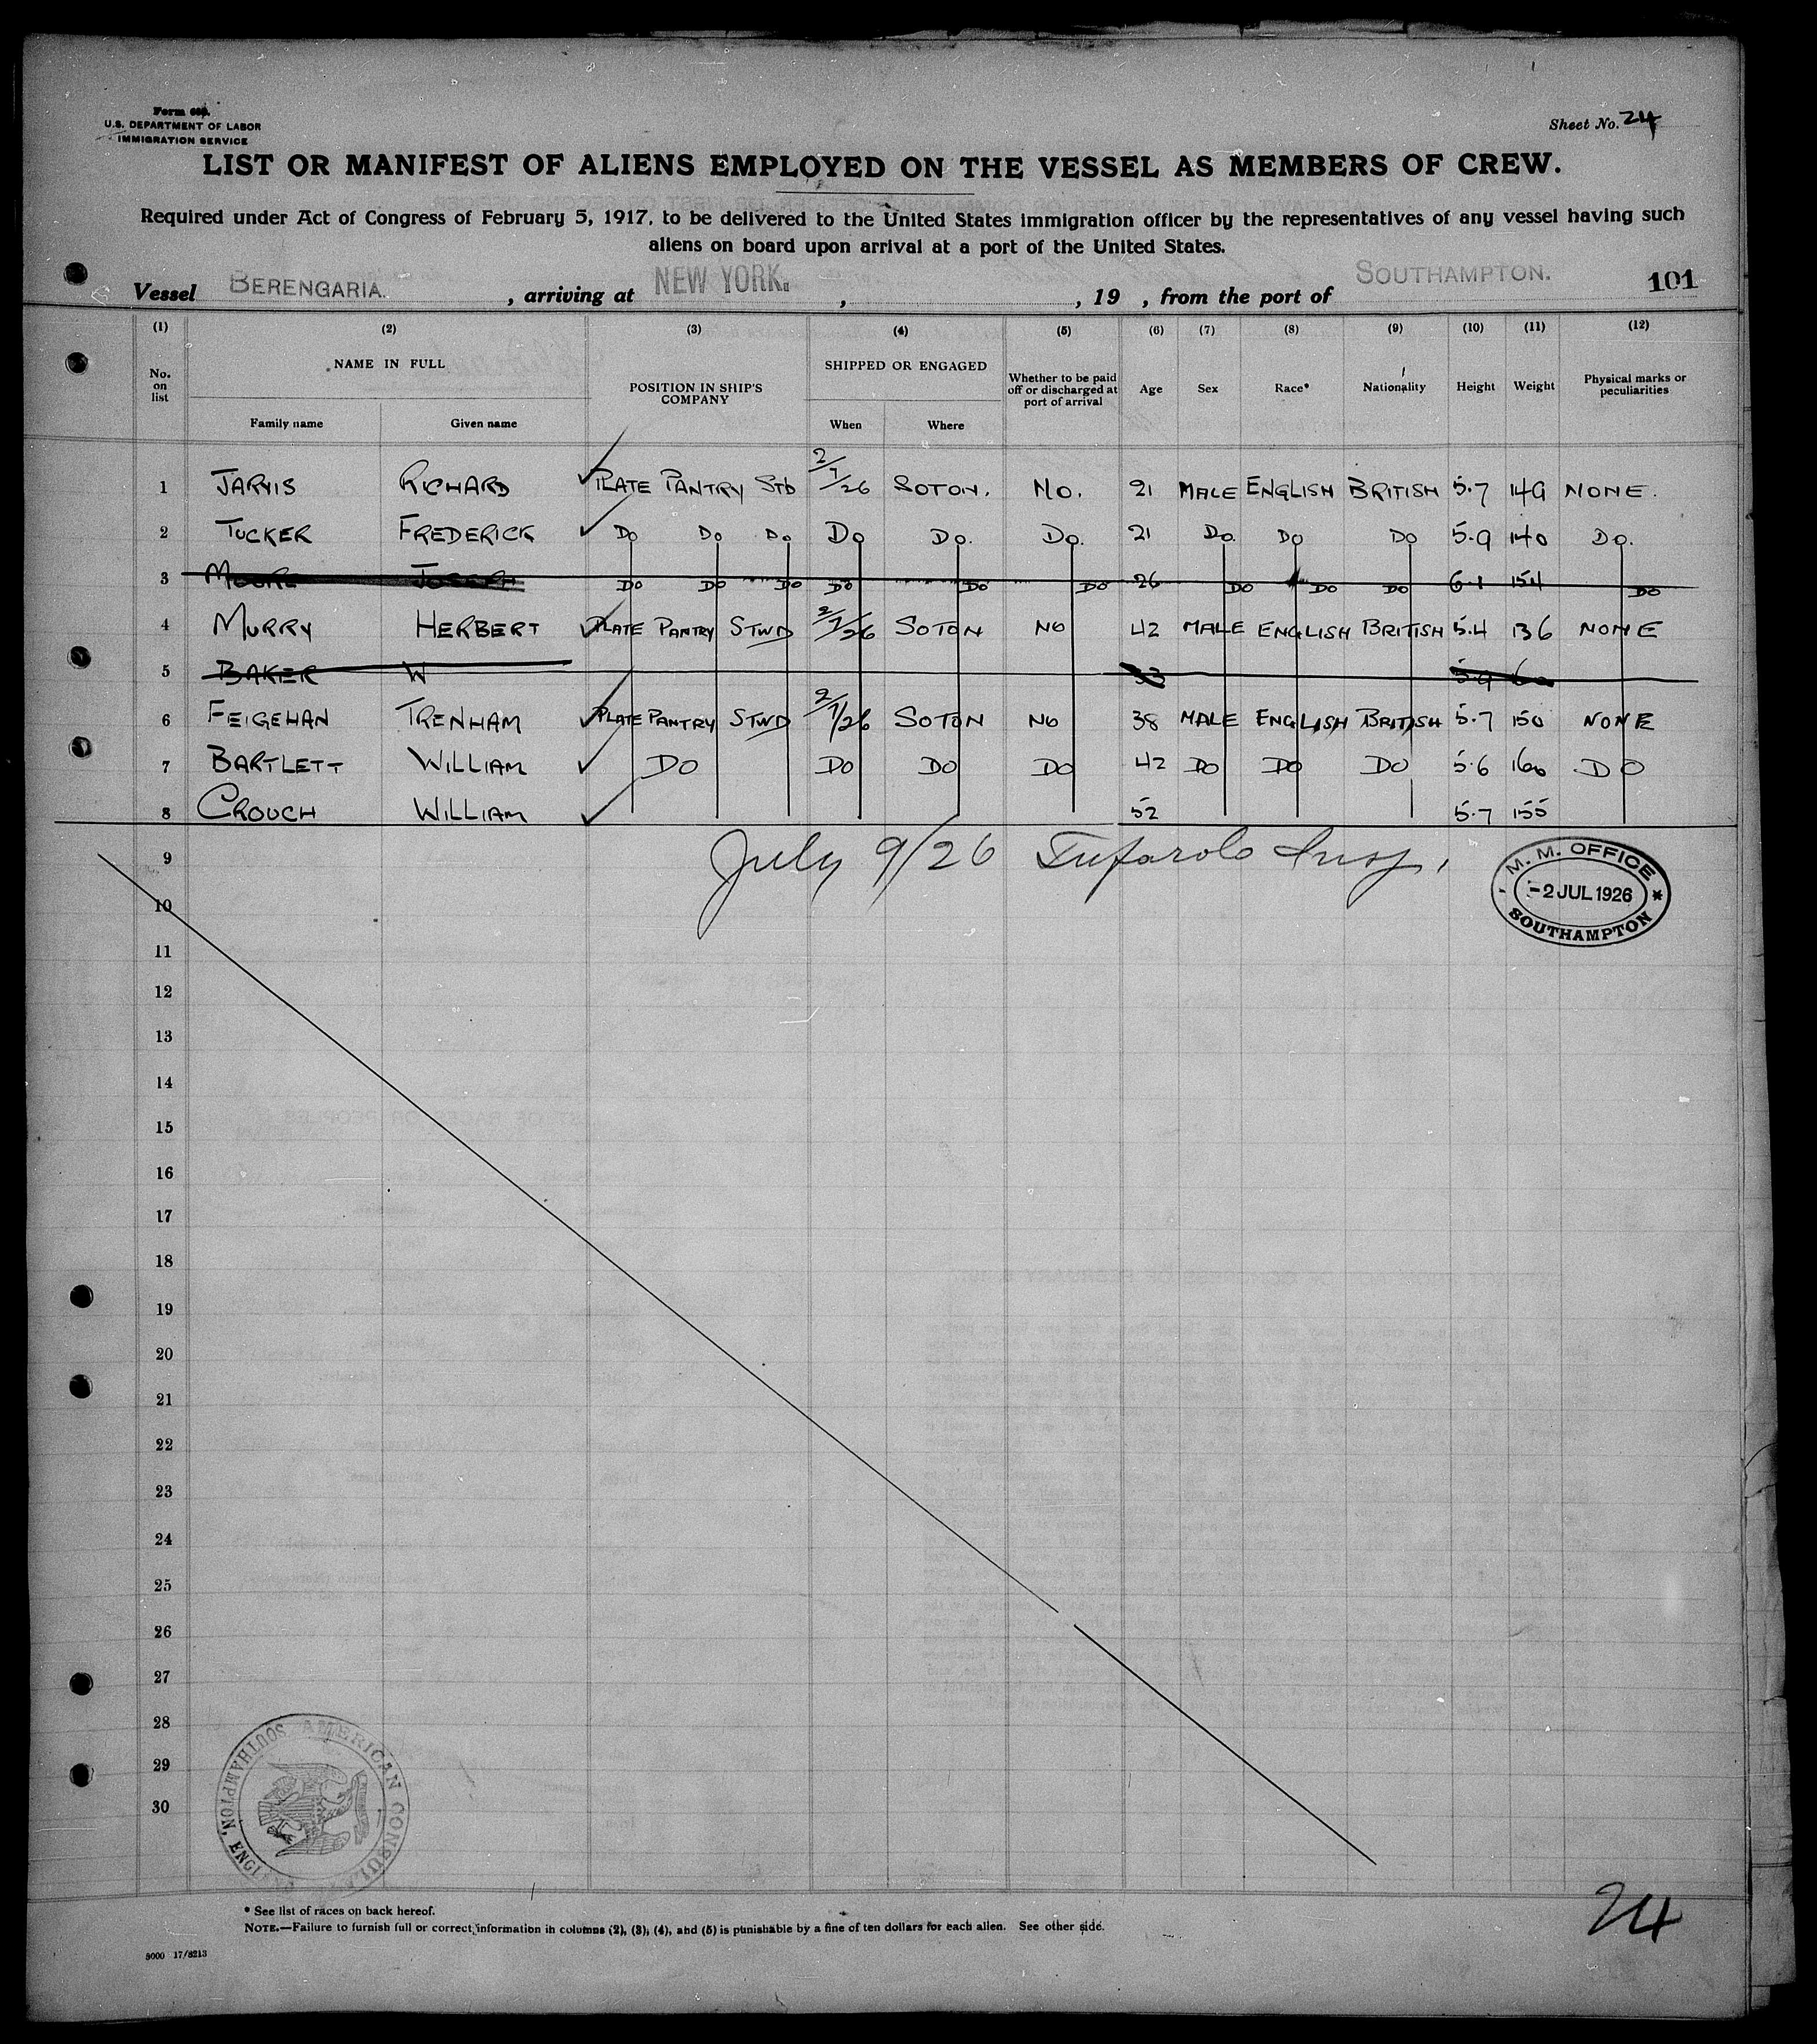 Form 680.
U.S. DEPARTMENT OF LABOR
IMMIGRATION SERVICE
Sheet No. 24
LIST OR MANIFEST OF ALIENS EMPLOYED ON THE VESSEL AS MEMBERS OF CREW.
Required under Act of Congress of February 5, 1917, to be delivered to the United States immigration officer by the representatives of any vessel having such
aliens on board upon arrival at a port of the United States.
Vessel BERENGARIA. , arriving at NEW YORK. , , 19 , from the port of SOUTHAMPTON. 101
(1) (2) (3) (4) (5) (6) (7) (8) (9) (10) (11) (12)
No. on list NAME IN FULL Family name Given name POSITION IN SHIP'S COMPANY SHIPPED OR ENGAGED When Where Whether to be paid off or discharged at port of arrival Age Sex Race* Nationality Height Weight Physical marks or peculiarities
1 JARVIS RICHARD PLATE PANTRY STD 2/7/26 SOTON. NO. 21 MALE ENGLISH BRITISH 5.7 149 NONE.
2 TUCKER FREDERICK DO DO DO DO DO. DO. 21 DO. DO DO 5.9 140 DO.
3 MOORE JOSEPH DO DO DO DO DO DO 26 DO DO DO 6.1 154 DO
4 MURRY HERBERT PLATE PANTRY STWD 2/7/26 SOTON NO 42 MALE ENGLISH BRITISH 5.4 136 NONE
5 BAKER W 5.9
6 FEIGEHAN TRENHAM PLATE PANTRY STWD 2/7/26 SOTON NO 38 MALE ENGLISH BRITISH 5.7 150 NONE
7 BARTLETT WILLIAM DO DO DO DO 42 DO DO DO 5.6 160 DO
8 CROUCH WILLIAM 52 5.7 155
9 July 9/26 Insp.
M. M. OFFICE
-2 JUL 1926 *
SOUTHAMPTON
10
11
12
13
14
15
16
17
18
19
20
21
22
23
24
25
26
27
28
29
30
AMERICAN CONSULATE
SOUTHAMPTON, ENGLAND
* See list of races on back hereof.
NOTE.—Failure to furnish full or correct information in columns (2), (3), (4), and (5) is punishable by a fine of ten dollars for each alien. See other side.
24
5000 17/8213